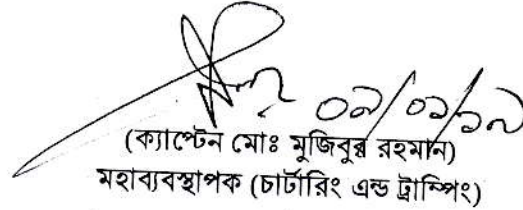 ০৯/০১/১৭
(ক্যাপ্টেন মোঃ মুজিবুর রহমান)
মহাব্যবস্থাপক (চার্টারিং এন্ড ট্রাম্পিং)